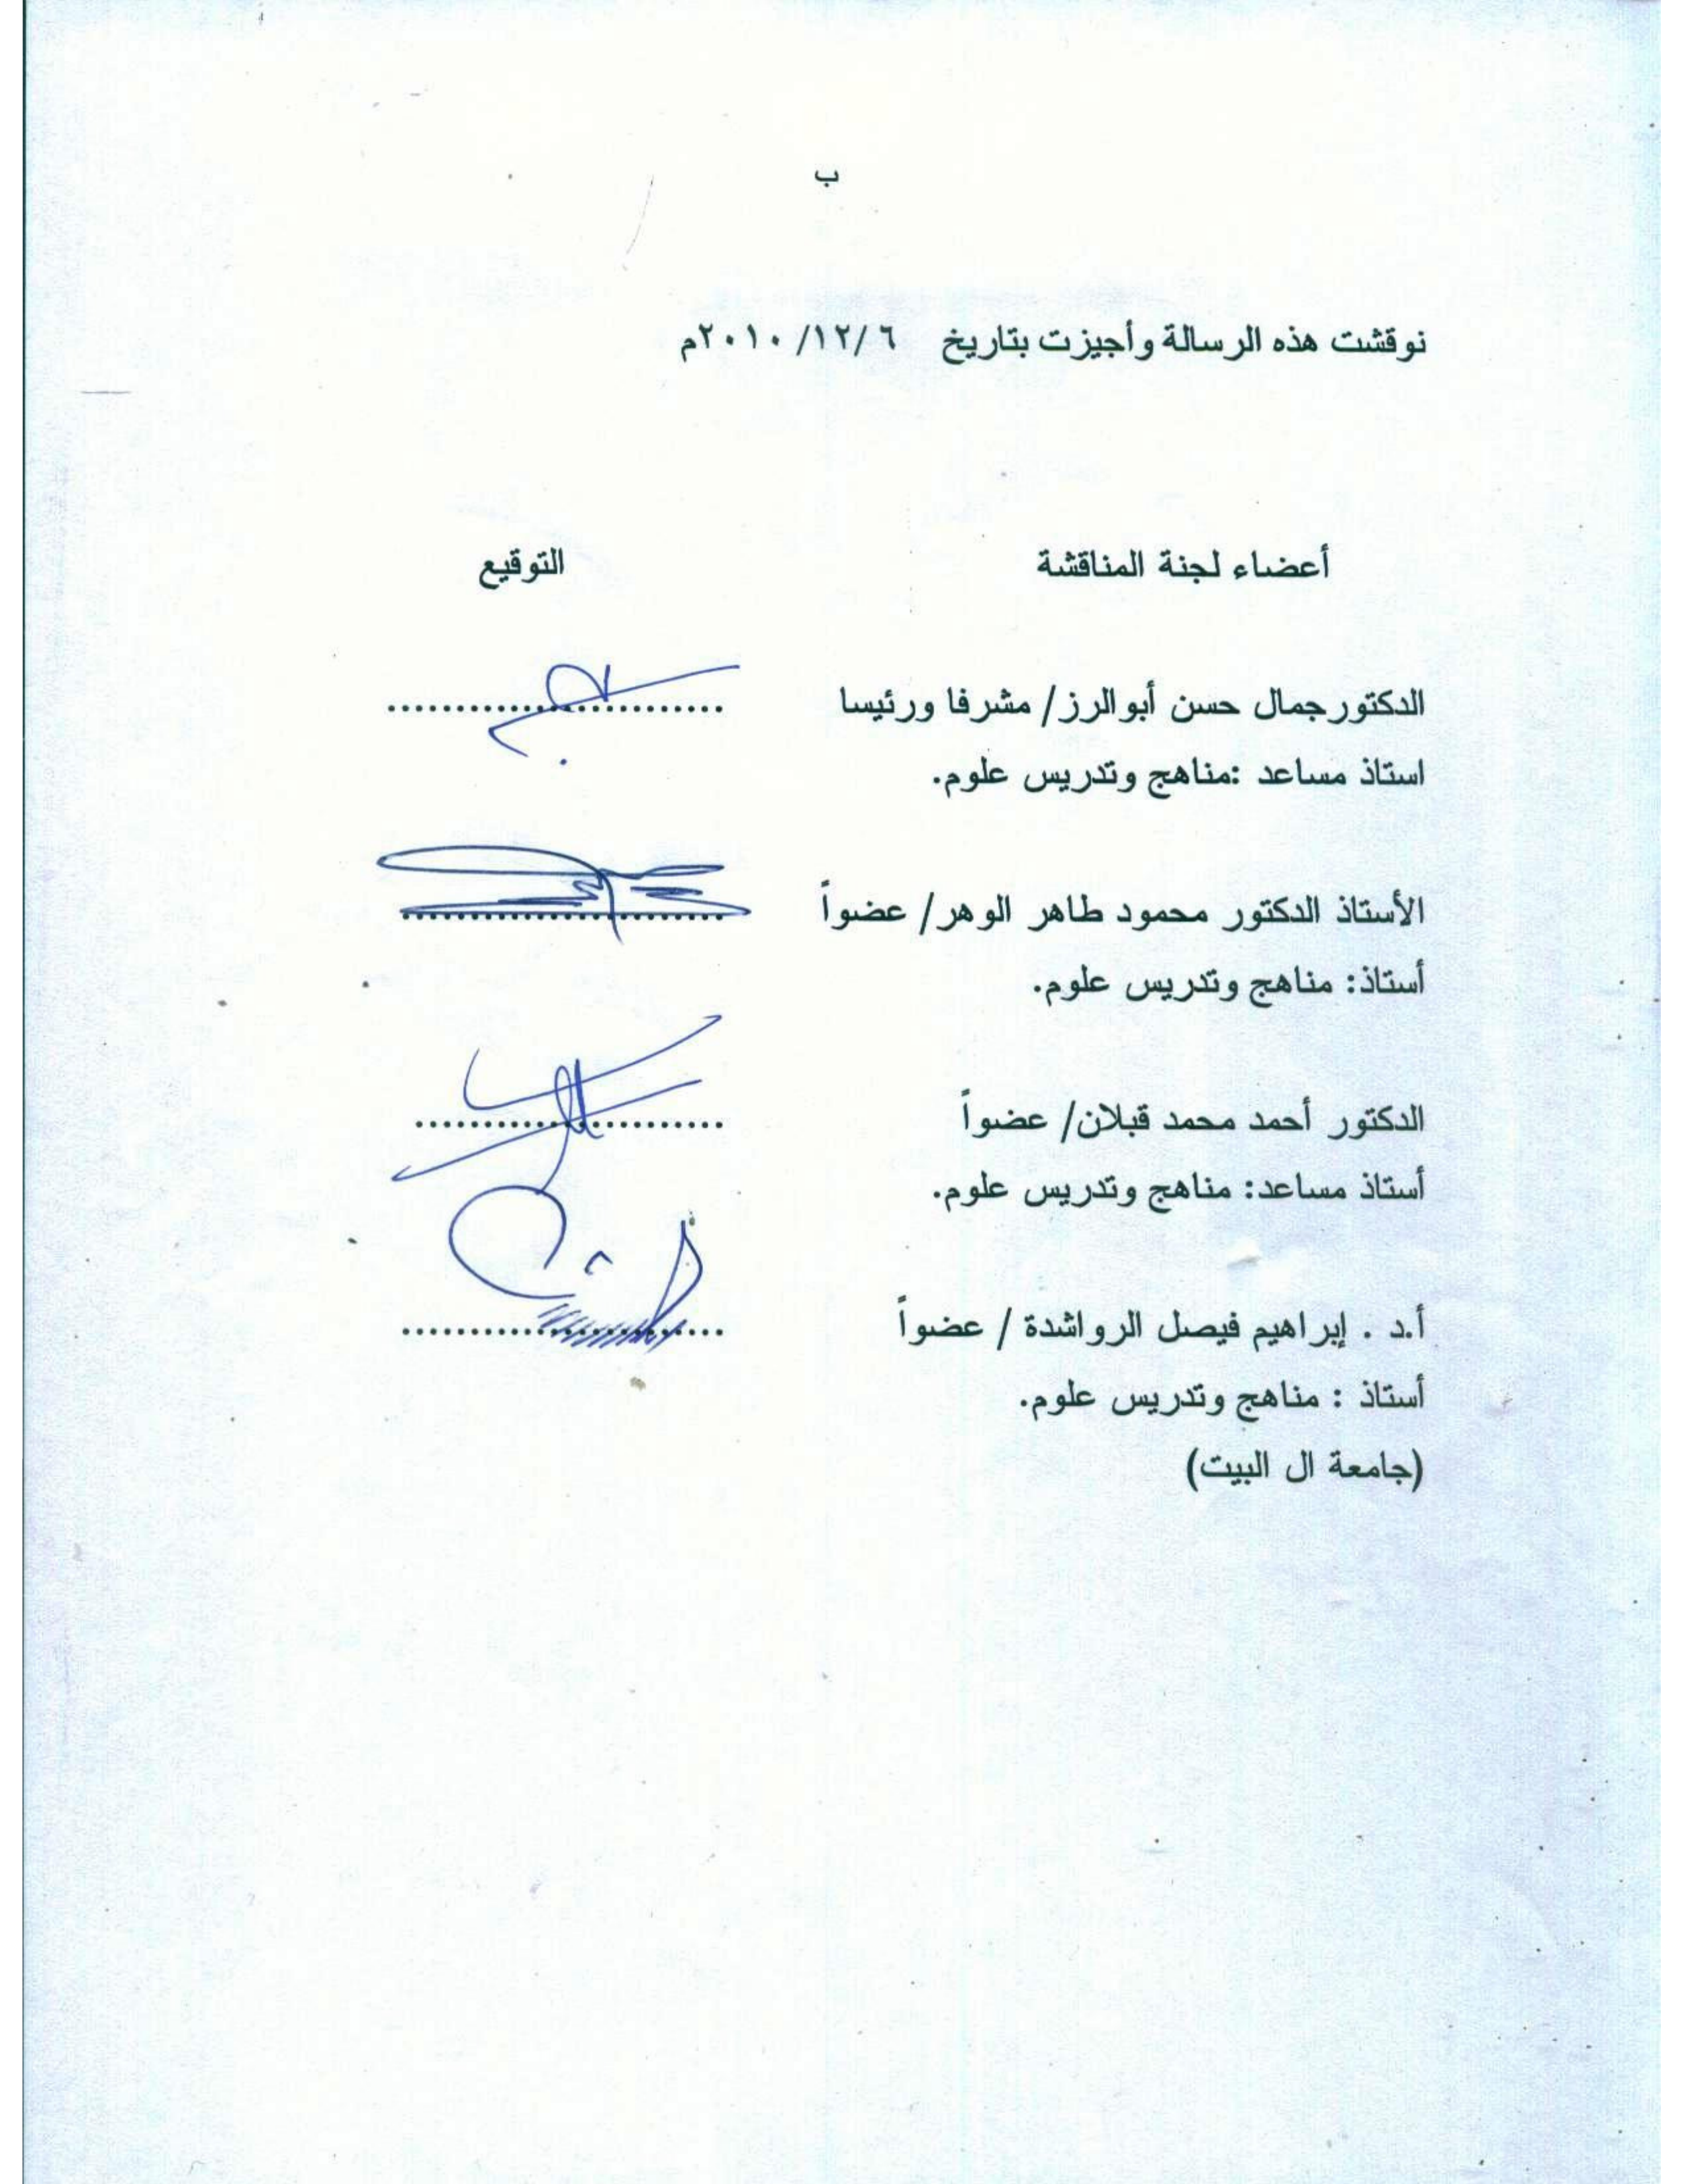 ب
نوقشت هذه الرسالة وأجيزت بتاريخ ٦ /١٢/ ٢٠١٠م
أعضاء لجنة المناقشة التوقيع
الدكتور جمال حسن أبو الرز/ مشرفا ورئيسا ........................
استاذ مساعد :مناهج وتدريس علوم.
الأستاذ الدكتور محمود طاهر الوهر/ عضواً ........................
أستاذ: مناهج وتدريس علوم.
الدكتور أحمد محمد قبلان/ عضواً ........................
أستاذ مساعد: مناهج وتدريس علوم.
أ.د . إبراهيم فيصل الرواشدة / عضواً ........................
أستاذ : مناهج وتدريس علوم.
(جامعة ال البيت)